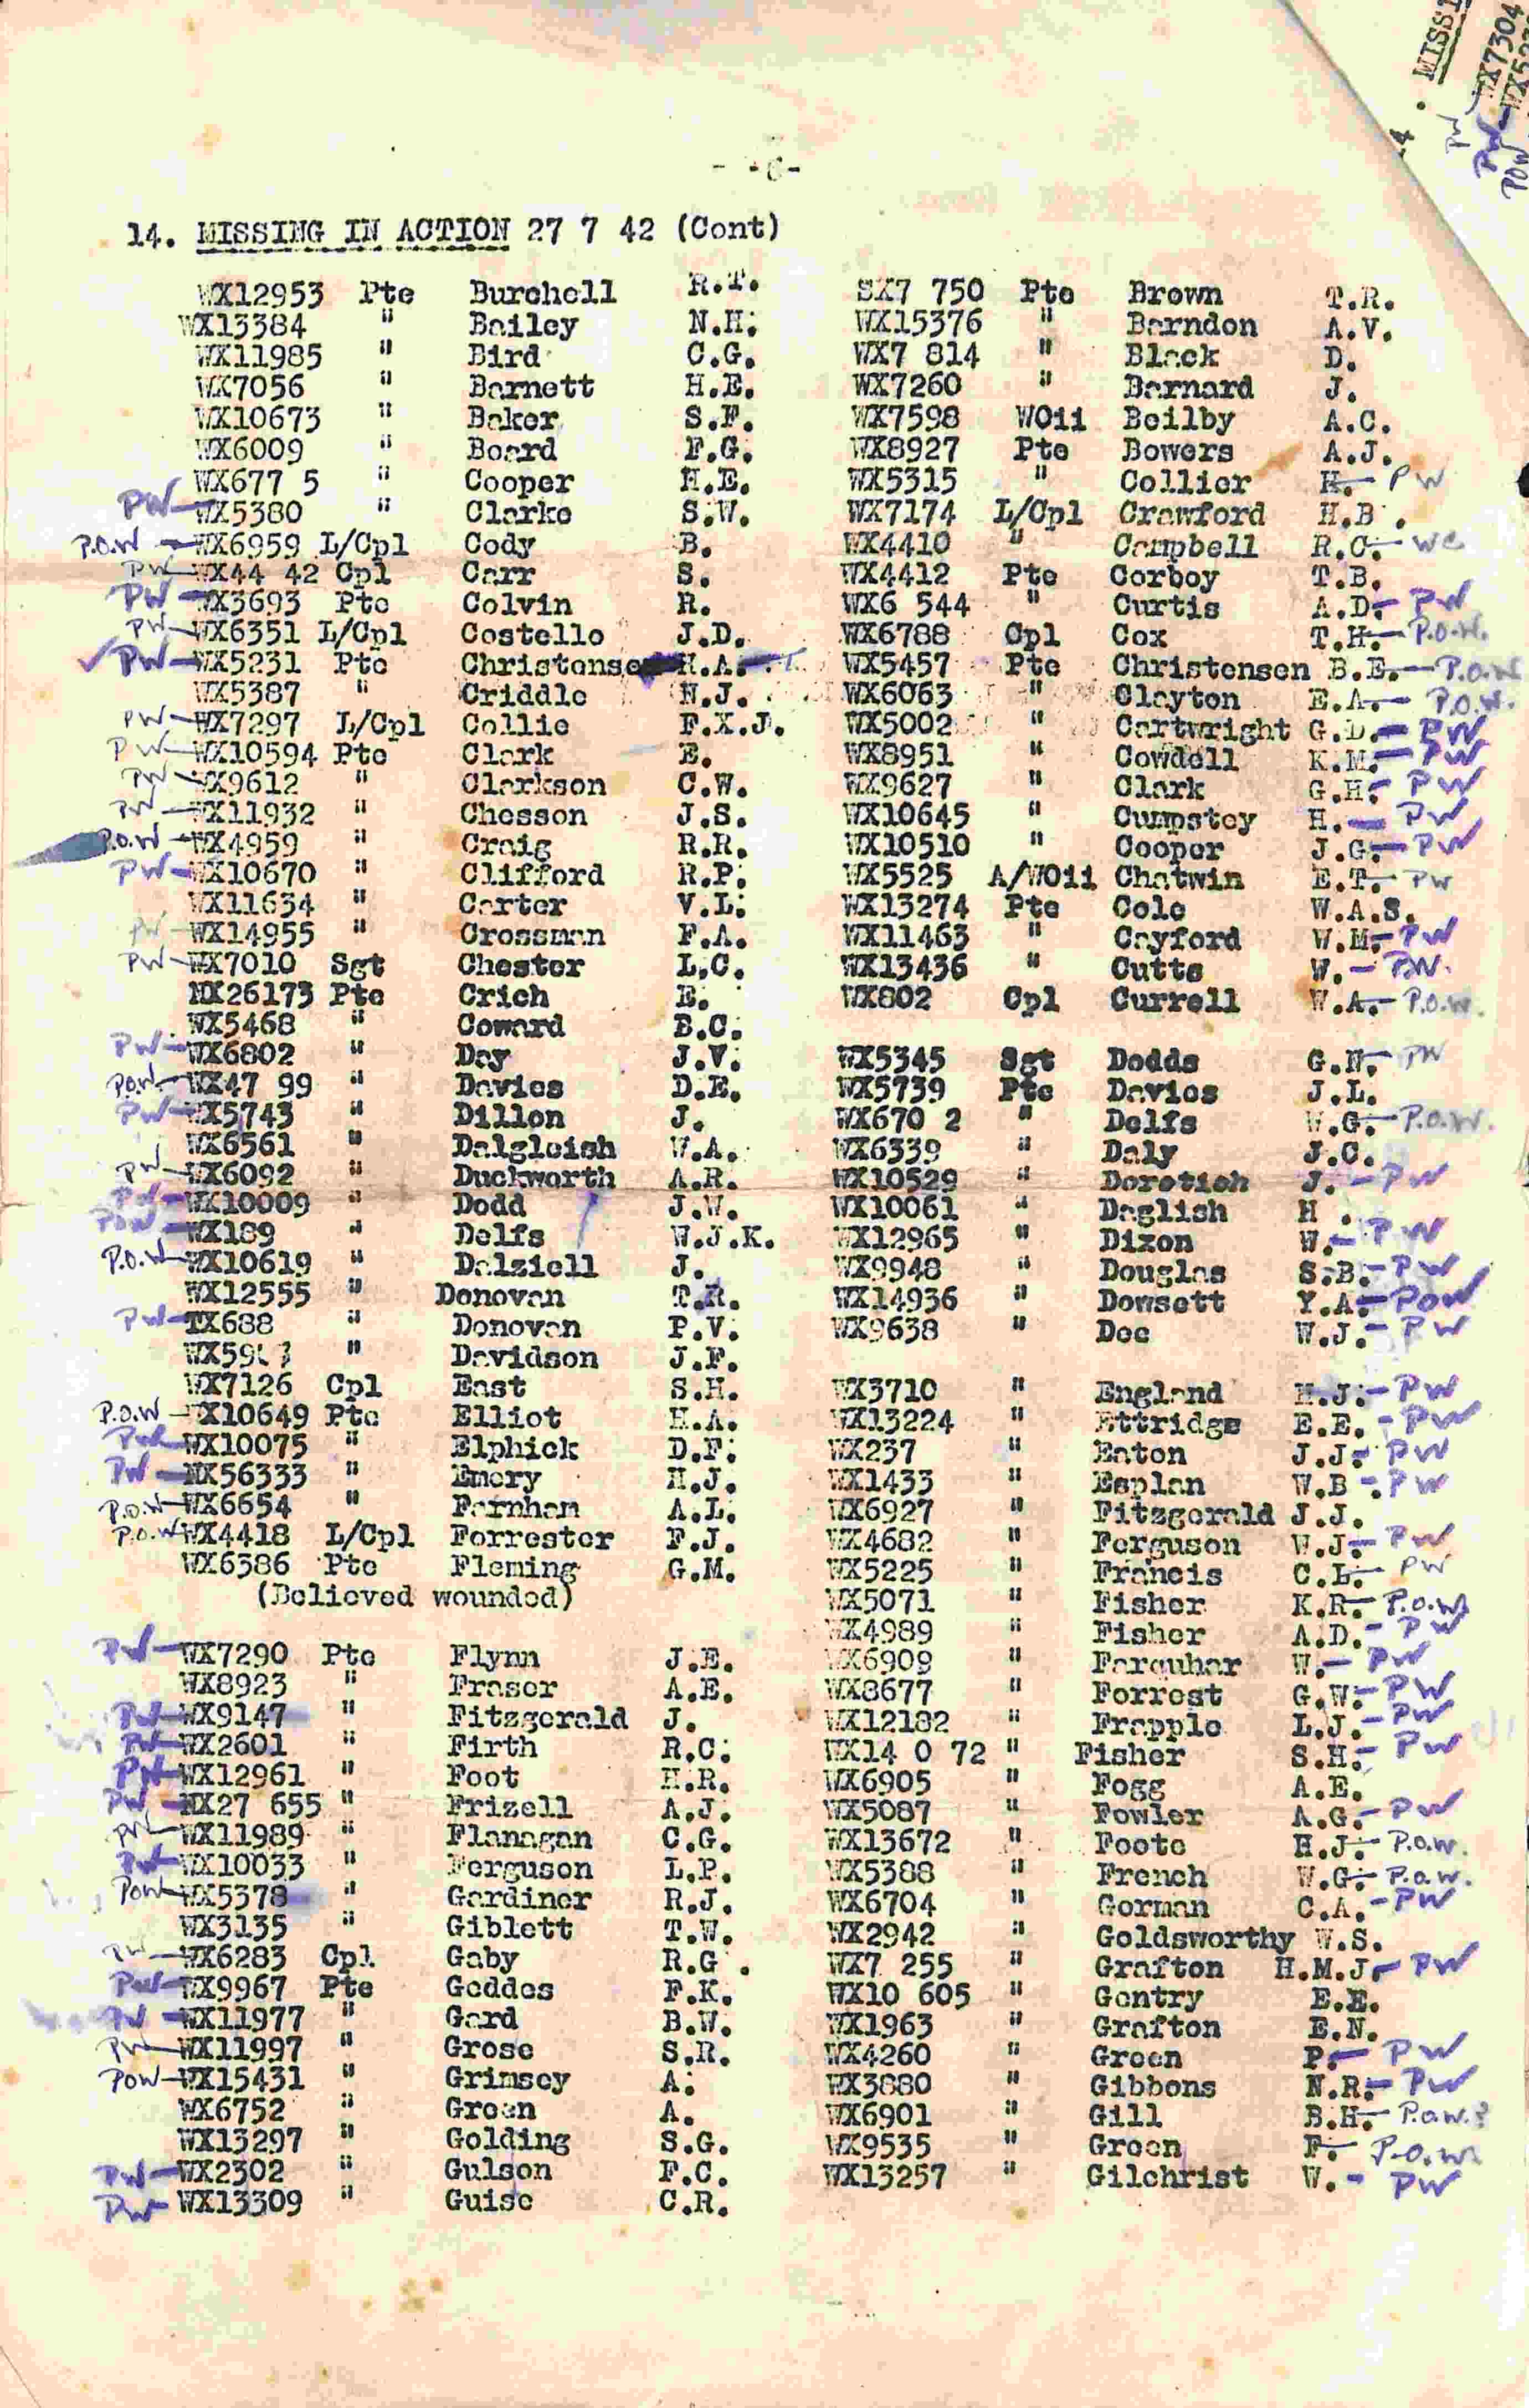 MISSI
WX7304
PW
PW
POW
- -6-
14. MISSING IN ACTION 27 7 42 (Cont)
WX12953 Pte Burchell R.T. SX7 750 Pte Brown T.R.
WX13384 " Bailey N.H. WX15376 " Barndon A.V.
WX11985 " Bird C.G. WX7 814 " Black D.
WX7056 " Barnett H.E. WX7260 " Barnard J.
WX10673 " Baker S.F. WX7598 WOii Beilby A.C.
WX6009 " Board F.G. WX8927 Pte Bowers A.J.
WX677 5 " Cooper H.E. WX5315 " Collier H. - PW
PW - WX5380 " Clarke S.W. WX7174 L/Cpl Crawford H.B .
P.O.W - WX6959 L/Cpl Cody B. WX4410 " Campbell R.C. -
PW - WX44 42 Cpl Carr S. WX4412 Pte Corboy T.B.
PW - WX3693 Pte Colvin R. WX6 544 " Curtis A.D. - PW
PW - WX6351 L/Cpl Costello J.D. WX6788 Cpl Cox T.H. - P.O.W.
✓ PW - WX5231 Pte Christensen H.A. WX5457 Pte Christensen B.E. - P.O.W
WX5387 " Criddle N.J. WX6063 " Clayton E.A. - P.O.W.
PW - WX7297 L/Cpl Collie F.X.J. WX5002 " Cartwright G.D. - PW
PW - WX10594 Pte Clark E. WX8951 " Cowdell K.M. - PW
PW - WX9612 " Clarkson C.W. WX9627 " Clark G.H. - PW
PW - WX11932 " Chesson J.S. WX10645 " Cumpstey H. - PW
P.O.W - WX4959 " Craig R.R. WX10510 " Cooper J.G. - PW
PW - WX10670 " Clifford R.P. WX5525 A/WOii Chatwin E.T. - PW
WX11634 " Carter V.L. WX13274 Pte Cole W.A.S.
PW - WX14955 " Crossman F.A. WX11463 " Cayford W.M. - PW
PW - WX7010 Sgt Chester L.C. WX13436 " Cutts W. - P.W.
NX26173 Pte Crich E. WX802 Cpl Currell W.A. - P.O.W.
WX5468 " Coward B.C.
PW - WX6802 " Day J.V. WX5345 Sgt Dodds G.N. - PW
P.O.W - WX47 99 " Davies D.E. WX5739 Pte Davies J.L.
PW - WX5743 " Dillon J. WX670 2 " Delfs W.G. - P.O.W.
WX6561 " Dalgleish W.A. WX6339 " Daly J.C.
PW - WX6092 " Duckworth A.R. WX10529 " Dorotich J. - PW
PW - WX10009 " Dodd J.W. WX10061 " Daglish H .
POW - WX189 " Delfs W.J.K. WX12965 " Dixon W. - PW
P.O.W - WX10619 " Dalziell J. WX9948 " Douglas S.B. - PW
WX12555 " Donovan T.R. WX14936 " Dowsett Y.A. - POW
PW - TX688 " Donovan P.V. WX9638 " Doe W.J. - PW
" Davidson J.F.
WX7126 Cpl East S.H. WX3710 " England H.J. - PW
P.O.W - WX10649 Pte Elliot H.A. WX13224 " Ettridge E.E. - PW
PW - WX10075 " Elphick D.F. WX237 " Eaton J.J. - PW
PW - NX56333 " Emery H.J. WX1433 " Esplan W.B - PW
P.O.W - WX6654 " Farnham A.L. WX6927 " Fitzgerald J.J.
P.O.W - WX4418 L/Cpl Forrester F.J. WX4682 " Ferguson W.J. - PW
WX6386 Pte Fleming G.M. WX5225 " Francis C.L. - PW
(Believed wounded) WX5071 " Fisher K.R. - P.O.W.
WX4989 " Fisher A.D. - PW
PW - WX7290 Pte Flynn J.E. WX6909 " Farquhar W. - PW
WX8923 " Fraser A.E. WX8677 " Forrest G.W. - PW
PW - WX9147 " Fitzgerald J. WX12182 " Frapple L.J. - PW
PW - WX2601 " Firth R.C. WX14 0 72 " Fisher S.H. - PW
PW - WX12961 " Foot H.R. WX6905 " Fogg A.E.
PW - NX27 655 " Frizell A.J. WX5087 " Fowler A.G. - PW
PW - WX11989 " Flanagan C.G. WX13672 " Foote H.J. - P.O.W.
PW - WX10033 " Ferguson L.P. WX5388 " French W.G. - P.O.W.
POW - WX5378 " Gardiner R.J. WX6704 " Gorman C.A. - PW
WX3135 " Giblett T.W. WX2942 " Goldsworthy W.S.
PW - WX6283 Cpl Gaby R.G . WX7 255 " Grafton H.M.J. - PW
PW - WX9967 Pte Geddes F.K. WX10 605 " Gentry E.E.
PW - WX11977 " Gard B.W. WX1963 " Grafton E.N.
PW - WX11997 " Grose S.R. WX4260 " Green P. - PW
POW - WX15431 " Grimsey A. WX3880 " Gibbons N.R. - PW
WX6752 " Green A. WX6901 " Gill B.H. - P.O.W.?
WX13297 " Golding S.G. WX9535 " Green F. - P.O.W.
PW - WX2302 " Gulson F.C. WX13257 " Gilchrist W. - PW
PW - WX13309 " Guise C.R.